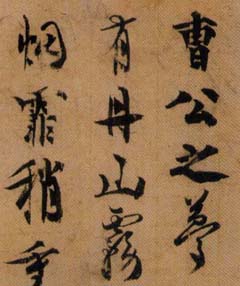 曹公之夢
有丹山霧
烟霏稍